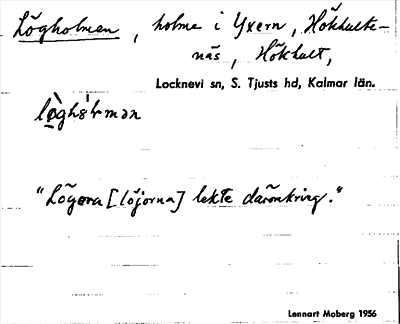 Lögholmen, holme i Yxern, Hökhulte-
näs, Hökhult,
Locknevi sn, S. Tjusts hd, Kalmar län.
"Lögera [löjorna] lekte daromkring."
Lennart Moberg 1956